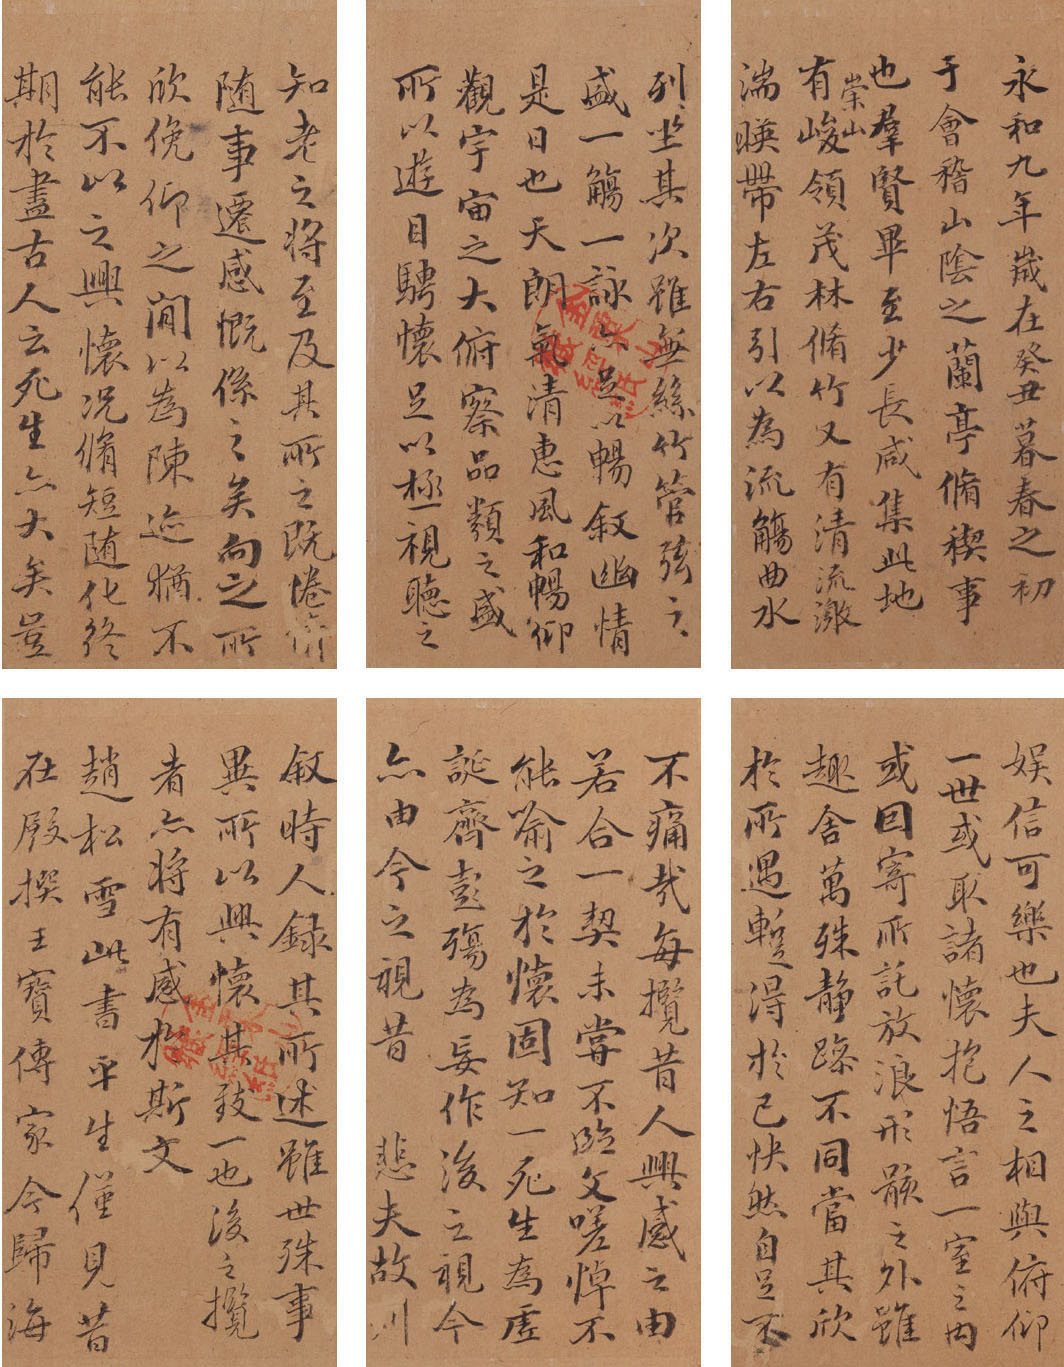 永和九年歲在癸丑暮春之初
于會稽山陰之蘭亭脩稧事
也羣賢畢至少長咸集此地
有崇山峻領茂林脩竹又有清流激
湍暎帶左右引以為流觴曲水
列坐其次雖無絲竹管弦之
盛一觴一詠亦足以暢叙幽情
是日也天朗氣清惠風和暢仰
觀宇宙之大俯察品類之盛
所以遊目騁懷足以極視聽之
知老之將至及其所之既惓
隨事遷感慨係之矣向之所
欣俛仰之閒以為陳迹猶不
能不以之興懷況脩短隨化終
期於盡古人云死生亦大矣豈
娛信可樂也夫人之相與俯仰
一世或取諸懷抱悟言一室之內
或因寄所託放浪形骸之外雖
趣舍萬殊靜躁不同當其欣
於所遇暫得於己怏然自足不
不痛哉每攬昔人興感之由
若合一契未嘗不臨文嗟悼不
能喻之於懷固知一死生為虛
誕齊彭殤為妄作後之視今
亦由今之視昔 悲夫故列
敘時人錄其所述雖世殊事
異所以興懷其致一也後之攬
者亦將有感於斯文
趙松雪此書平生僅見昔
在殿撰王寶傳家今歸海